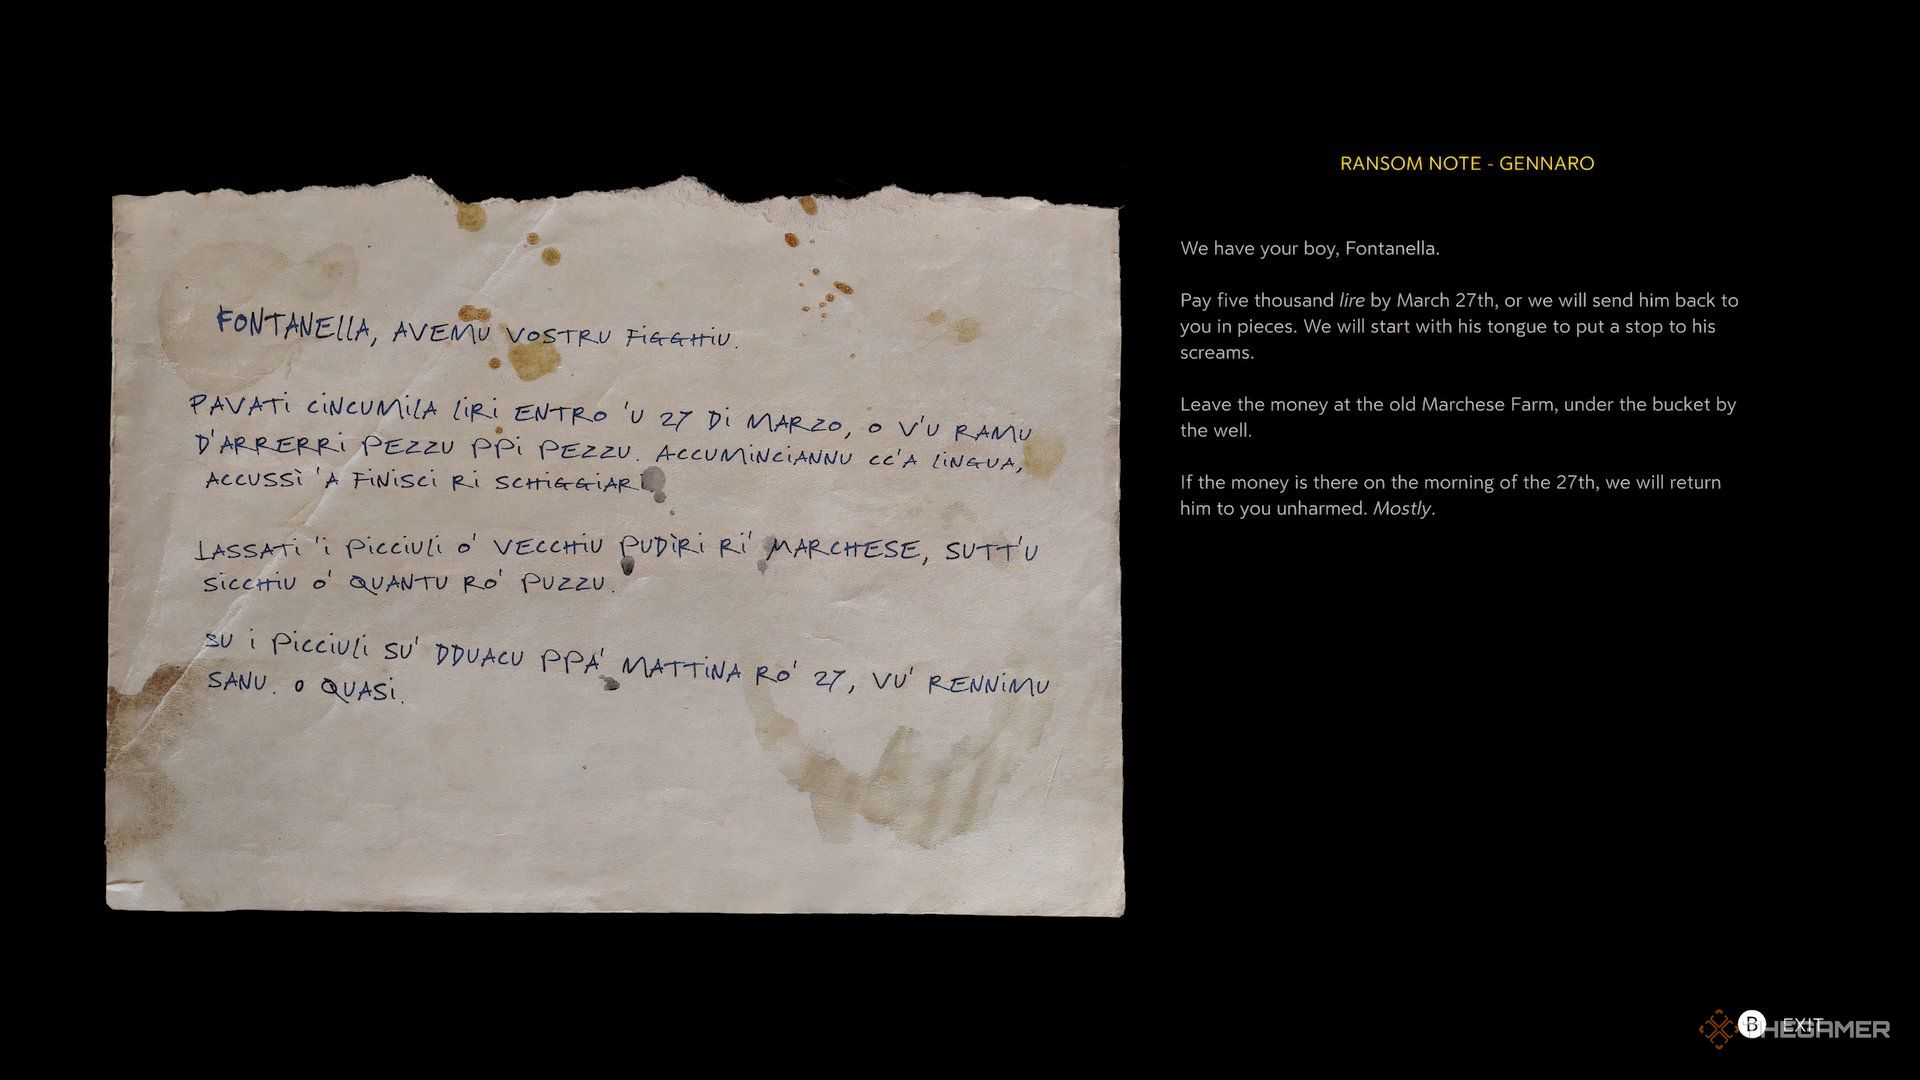 FONTANELLA, AVEMU VOSTRU FIGGHIU.
PAVATI CINCUMILA LIRI ENTRO 'U 27 DI MARZO, O V'U RAMU
D'ARRERRI PEZZU PPI PEZZU. ACCUMINCIANNU CC'A LINGUA,
ACCUSSÌ 'A FINISCI RI SCHIGGIARI
LASSATI 'I PICCIULI O' VECCHIU PUDIRI RI' MARCHESE, SUTT'U
SICCHIU O' QUANTU RO' PUZZU.
SU I PICCIULI SU' DDUACU PPA' MATTINA RO' 27, VU' RENNIMU
SANU. O QUASI.
RANSOM NOTE - GENNARO
We have your boy, Fontanella.
Pay five thousand lire by March 27th, or we will send him back to
you in pieces. We will start with his tongue to put a stop to his
screams.
Leave the money at the old Marchese Farm, under the bucket by
the well.
If the money is there on the morning of the 27th, we will return
him to you unharmed. Mostly.
B EXIT
THEGAMER